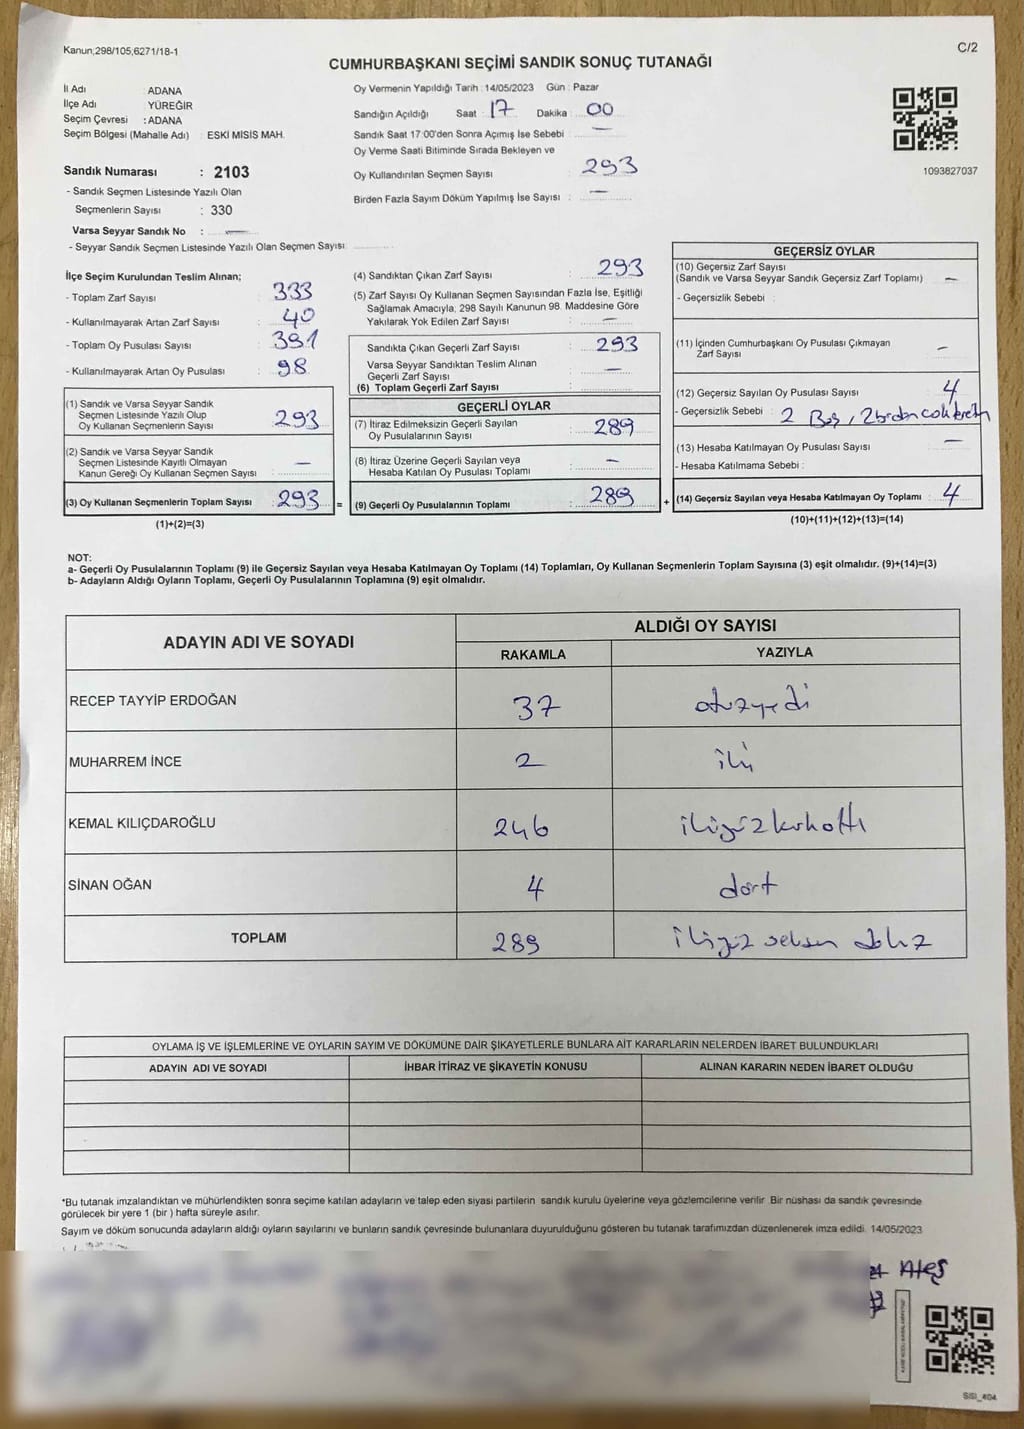 Kanun;298/105,6271/18-1
C/2
CUMHURBAŞKANI SEÇİMİ SANDIK SONUÇ TUTANAĞI
İl Adı : ADANA
İlçe Adı : YÜREĞİR
Seçim Çevresi : ADANA
Seçim Bölgesi (Mahalle Adı) : ESKİ MİSİS MAH.
Oy Vermenin Yapıldığı Tarih : 14/05/2023 Gün : Pazar
Sandığın Açıldığı Saat : 17 Dakika : 00
Sandık Saat 17:00'den Sonra Açımış İse Sebebi : —
Oy Verme Saati Bitiminde Sırada Bekleyen ve
Oy Kullandırılan Seçmen Sayısı : 293
Birden Fazla Sayım Döküm Yapılmış İse Sayısı : —
1093827037
Sandık Numarası : 2103
- Sandık Seçmen Listesinde Yazılı Olan
Seçmenlerin Sayısı : 330
Varsa Seyyar Sandık No : —
- Seyyar Sandık Seçmen Listesinde Yazılı Olan Seçmen Sayısı:
İlçe Seçim Kurulundan Teslim Alınan;
- Toplam Zarf Sayısı : 333
- Kullanılmayarak Artan Zarf Sayısı : 40
- Toplam Oy Pusulası Sayısı : 391
- Kullanılmayarak Artan Oy Pusulası : 98
(1) Sandık ve Varsa Seyyar Sandık
Seçmen Listesinde Yazılı Olup
Oy Kullanan Seçmenlerin Sayısı : 293
(2) Sandık ve Varsa Seyyar Sandık
Seçmen Listesinde Kayıtlı Olmayan
Kanun Gereği Oy Kullanan Seçmen Sayısı : —
(3) Oy Kullanan Seçmenlerin Toplam Sayısı : 293 =
(1)+(2)=(3)
(4) Sandıktan Çıkan Zarf Sayısı : 293
(5) Zarf Sayısı Oy Kullanan Seçmen Sayısından Fazla İse, Eşitliği
Sağlamak Amacıyla, 298 Sayılı Kanunun 98. Maddesine Göre
Yakılarak Yok Edilen Zarf Sayısı : —
Sandıkta Çıkan Geçerli Zarf Sayısı : 293
Varsa Seyyar Sandıktan Teslim Alınan
Geçerli Zarf Sayısı : —
(6) Toplam Geçerli Zarf Sayısı :
GEÇERLİ OYLAR
(7) İtiraz Edilmeksizin Geçerli Sayılan
Oy Pusulalarının Sayısı : 289
(8) İtiraz Üzerine Geçerli Sayılan veya
Hesaba Katılan Oy Pusulası Toplamı : —
(9) Geçerli Oy Pusulalarının Toplamı : 289 +
GEÇERSİZ OYLAR
(10) Geçersiz Zarf Sayısı
(Sandık ve Varsa Seyyar Sandık Geçersiz Zarf Toplamı) : —
- Geçersizlik Sebebi :
(11) İçinden Cumhurbaşkanı Oy Pusulası Çıkmayan
Zarf Sayısı : —
(12) Geçersiz Sayılan Oy Pusulası Sayısı : 4
- Geçersizlik Sebebi : 2 Boş, 2 birden çok
(13) Hesaba Katılmayan Oy Pusulası Sayısı : —
- Hesaba Katılmama Sebebi :
(14) Geçersiz Sayılan veya Hesaba Katılmayan Oy Toplamı : 4
(10)+(11)+(12)+(13)=(14)
NOT:
a- Geçerli Oy Pusulalarının Toplamı (9) ile Geçersiz Sayılan veya Hesaba Katılmayan Oy Toplamı (14) Toplamları, Oy Kullanan Seçmenlerin Toplam Sayısına (3) eşit olmalıdır. (9)+(14)=(3)
b- Adayların Aldığı Oyların Toplamı, Geçerli Oy Pusulalarının Toplamına (9) eşit olmalıdır.
ADAYIN ADI VE SOYADI
ALDIĞI OY SAYISI
RAKAMLA YAZIYLA
RECEP TAYYİP ERDOĞAN 37 otuzyedi
MUHARREM İNCE 2 iki
KEMAL KILIÇDAROĞLU 246 ikiyüzkırkaltı
SİNAN OĞAN 4 dört
TOPLAM 289 ikiyüz seksen dokuz
OYLAMA İŞ VE İŞLEMLERİNE VE OYLARIN SAYIM VE DÖKÜMÜNE DAİR ŞİKAYETLERLE BUNLARA AİT KARARLARIN NELERDEN İBARET BULUNDUKLARI
ADAYIN ADI VE SOYADI İHBAR İTİRAZ VE ŞİKAYETİN KONUSU ALINAN KARARIN NEDEN İBARET OLDUĞU
*Bu tutanak imzalandıktan ve mühürlendikten sonra seçime katılan adayların ve talep eden siyasi partilerin sandık kurulu üyelerine veya gözlemcilerine verilir. Bir nüshası da sandık çevresinde
görülecek bir yere 1 (bir ) hafta süreyle asılır.
Sayım ve döküm sonucunda adayların aldığı oyların sayılarını ve bunların sandık çevresinde bulunanlara duyurulduğunu gösteren bu tutanak tarafımızdan düzenlenerek imza edildi. 14/05/2023
Ateş
SİSİ_404